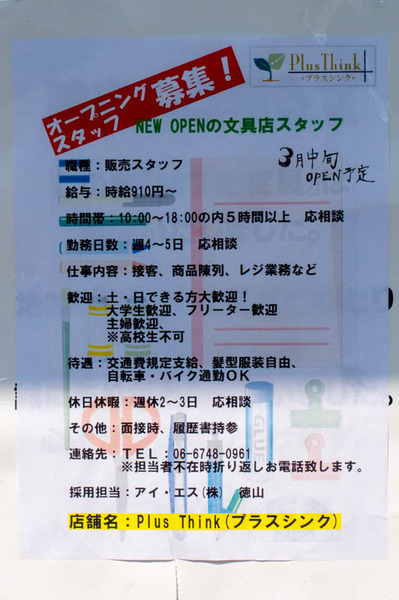 オープニング
スタッフ
募集！
Plus Think
・プラスシンク・
NEW OPENの文具店スタッフ
3月中旬
OPEN予定
職種：販売スタッフ
給与：時給910円～
時間帯：10:00～18:00の内5時間以上　応相談
勤務日数：週4～5日　応相談
仕事内容：接客、商品陳列、レジ業務など
歓迎：土・日できる方大歓迎！
大学生歓迎、フリーター歓迎
主婦歓迎、
※高校生不可
待遇：交通費規定支給、髪型服装自由、
自転車・バイク通勤OK
休日休暇：週休2～3日　応相談
その他：面接時、履歴書持参
連絡先：TEL：06-6748-0961
※担当者不在時折り返しお電話致します。
採用担当：アイ・エス(株)　徳山
店舗名：Plus Think(プラスシンク)
GLUE